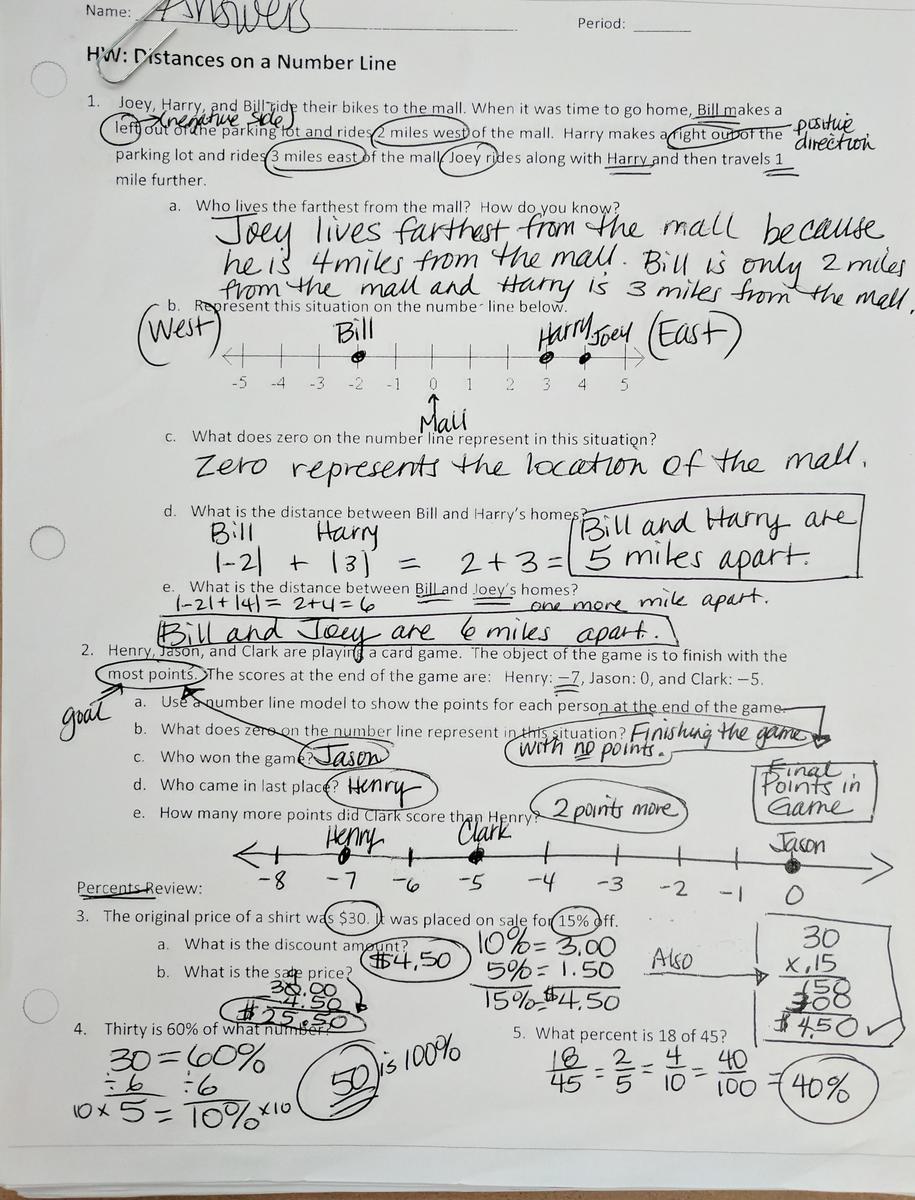 Name: Answers
Period:
HW: Distances on a Number Line
1. Joey, Harry, and Bill ride their bikes to the mall. When it was time to go home, Bill makes a
(negative side)
left out of the parking lot and rides 2 miles west of the mall. Harry makes a right out of the
positive direction
parking lot and rides 3 miles east of the mall. Joey rides along with Harry and then travels 1
mile further.
a. Who lives the farthest from the mall? How do you know?
Joey lives farthest from the mall because
he is 4 miles from the mall. Bill is only 2 miles
from the mall and Harry is 3 miles from the mall.
b. Represent this situation on the number line below.
(West) Bill Harry Joey (East)
-5 -4 -3 -2 -1 0 1 2 3 4 5
Mall
c. What does zero on the number line represent in this situation?
Zero represents the location of the mall.
d. What is the distance between Bill and Harry's homes?
Bill Harry
|-2| + |3| = 2+3 = Bill and Harry are
5 miles apart.
e. What is the distance between Bill and Joey's homes?
|-2|+|4| = 2+4=6 one more mile apart.
Bill and Joey are 6 miles apart.
2. Henry, Jason, and Clark are playing a card game. The object of the game is to finish with the
most points. The scores at the end of the game are: Henry: −7, Jason: 0, and Clark: −5.
goal
a. Use a number line model to show the points for each person at the end of the game.
b. What does zero on the number line represent in this situation? Finishing the game
with no points.
c. Who won the game? Jason
d. Who came in last place? Henry
Final
Points in
Game
e. How many more points did Clark score than Henry? 2 points more
Henry Clark Jason
-8 -7 -6 -5 -4 -3 -2 -1 0
Percents Review:
3. The original price of a shirt was $30. It was placed on sale for 15% off.
a. What is the discount amount? $4.50
b. What is the sale price?
30.00
-4.50
$25.50
10% = 3.00
5% = 1.50
15% = $4.50
Also
30
x.15
150
300
$4.50
4. Thirty is 60% of what number?
30 = 60%
÷6 ÷6
10 x 5 = 10% x10
50 is 100%
5. What percent is 18 of 45?
18/45 = 2/5 = 4/10 = 40/100 = 40%